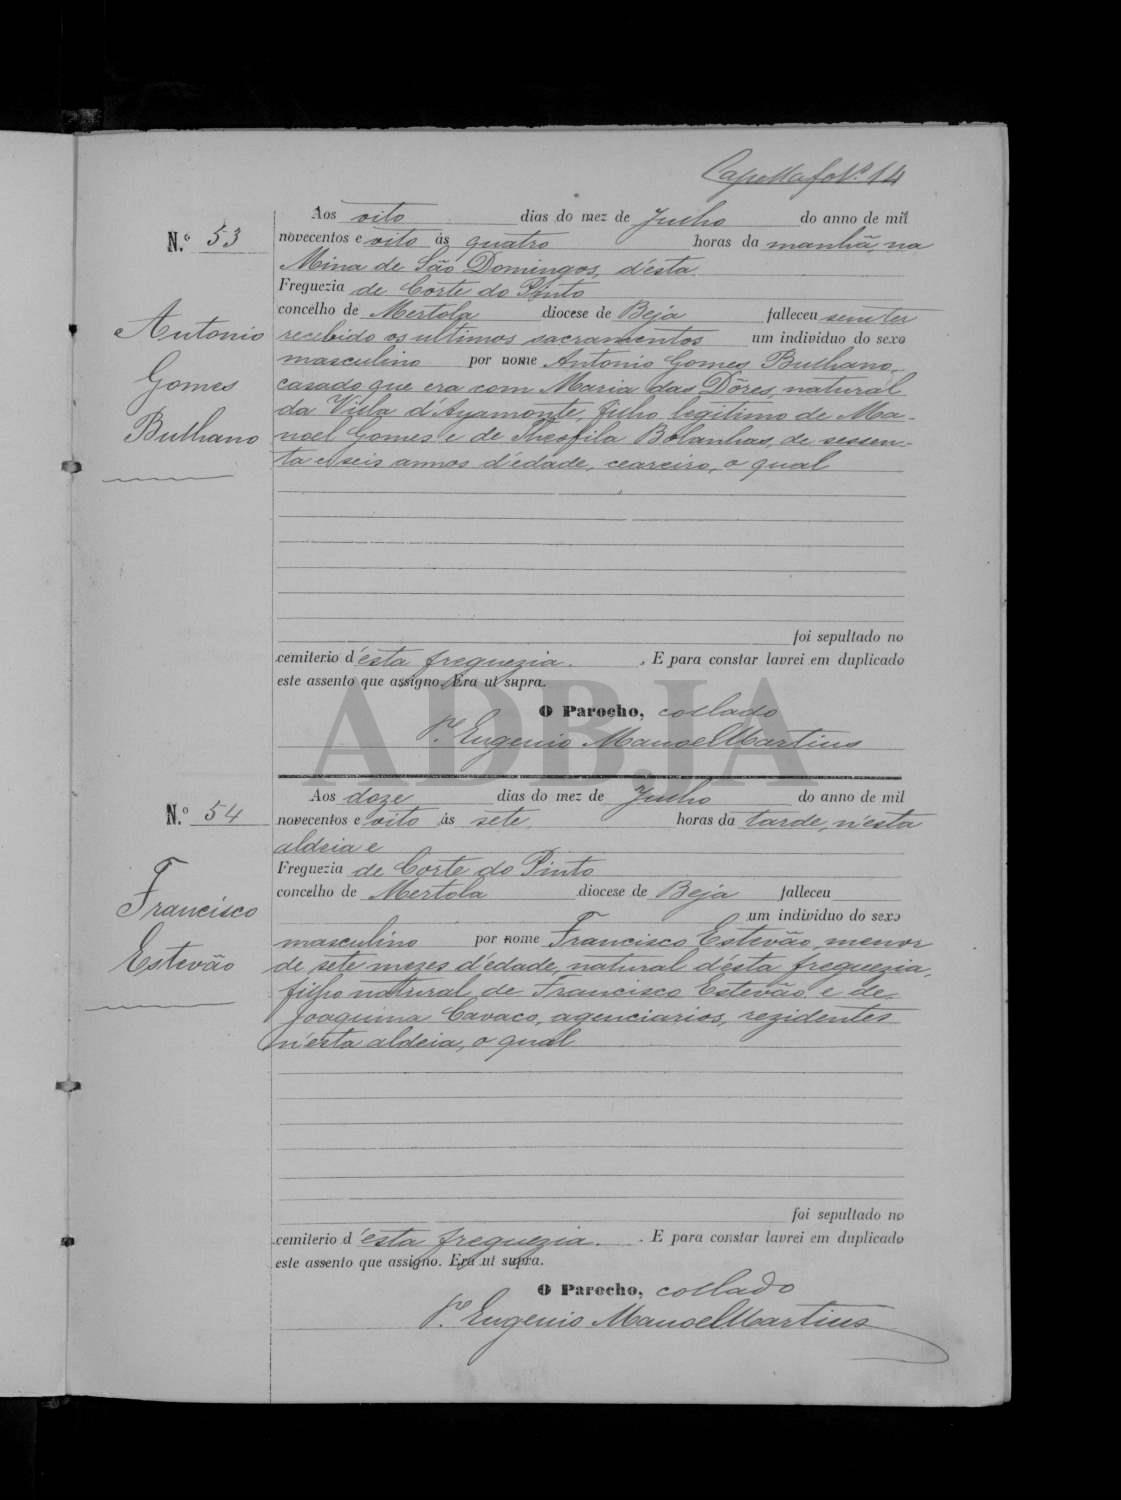 Capella folº 14
N.º 53
Antonio
Gomes
Bulhano
Aos oito dias do mez de Julho do anno de mil
novecentos e oito ás quatro horas da manhã, na
Mina de São Domingos, d'esta
Freguezia de Corte do Pinto
concelho de Mertola diocese de Beja falleceu sem ter
recebido os ultimos sacramentos um individuo do sexo
masculino por nome Antonio Gomes Bulhano,
casado que era com Maria das Dôres, natural
da Villa d'Ayamonte, filho legitimo de Ma-
noel Gomes e de Theofila Bolanhas, de sessen-
ta e seis annos d'edade, ceareiro, o qual
foi sepultado no
cemiterio d'esta freguezia. E para constar lavrei em duplicado
este assento que assigno. Era ut supra.
O Parocho, collado
Pe. Eugenio Manoel Martins
ADBJA
N.º 54
Francisco
Estevão
Aos doze dias do mez de Julho do anno de mil
novecentos e oito ás sete horas da tarde, n'esta
aldeia e
Freguezia de Corte do Pinto
concelho de Mertola diocese de Beja falleceu
um individuo do sexo
masculino por nome Francisco Estevão, menor
de sete mezes d'edade, natural d'esta freguezia,
filho natural de Francisco Estevão e de
Joaquina Cavaco, agenciarios, rezidentes
n'esta aldeia, o qual
foi sepultado no
cemiterio d'esta freguezia. E para constar lavrei em duplicado
este assento que assigno. Era ut supra.
O Parocho, collado
Pe. Eugenio Manoel Martins